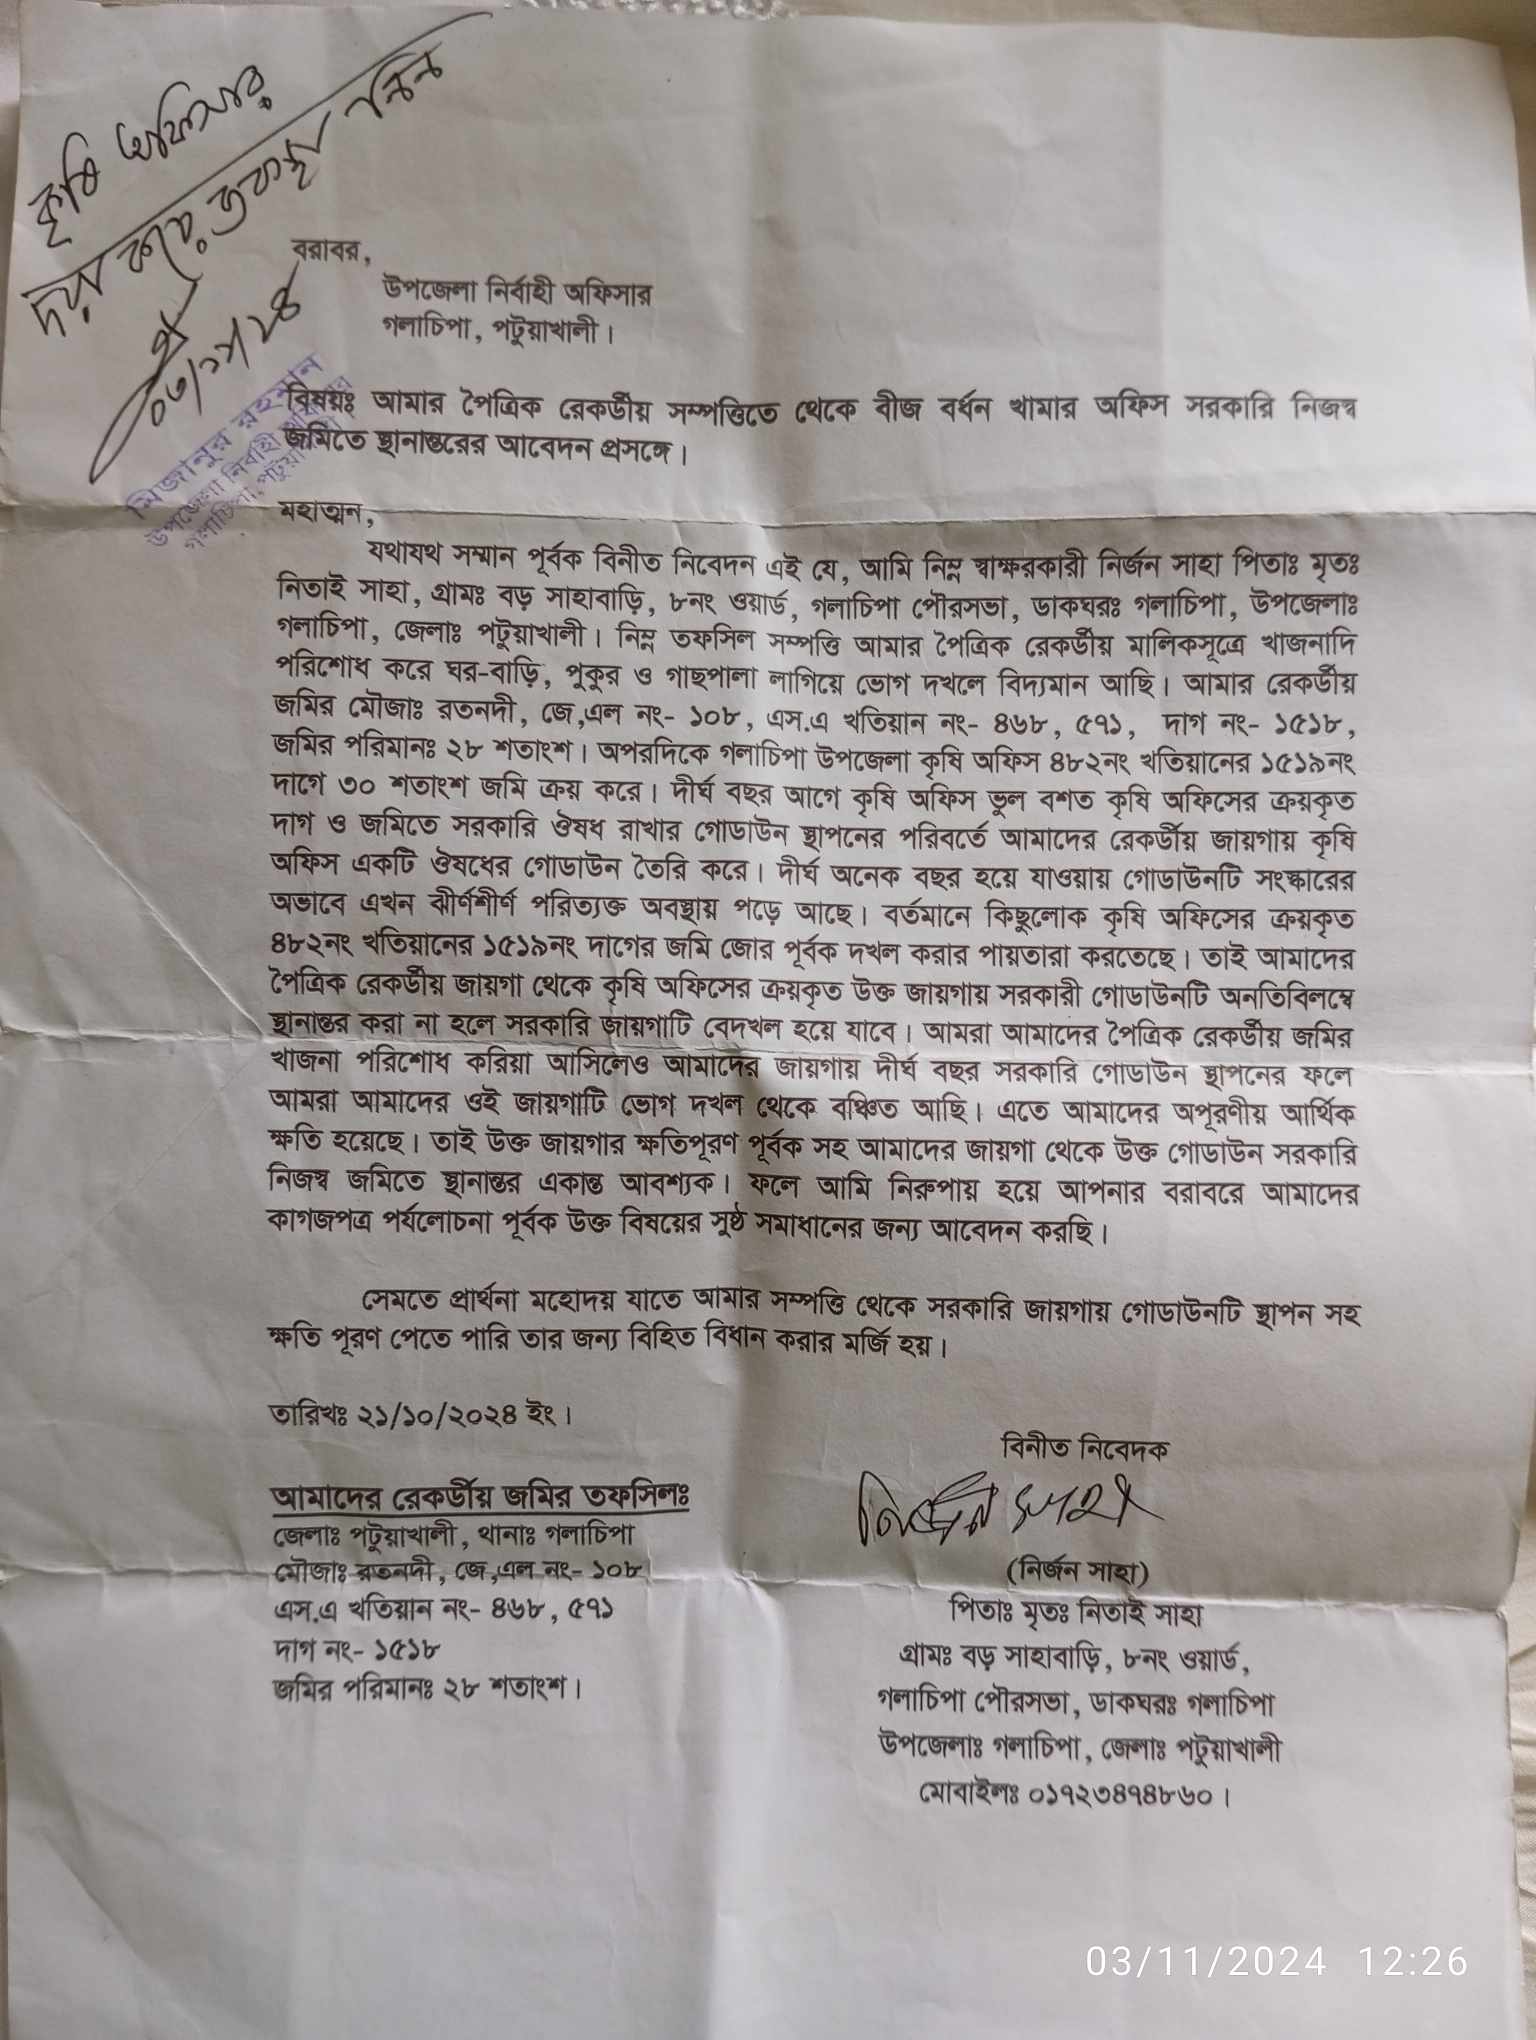 কৃষি অফিসার
দয়া করে ব্যবস্থা নিন
০৩/১১/২৪
মিজানুর রহমান
উপজেলা নির্বাহী অফিসার
গলাচিপা, পটুয়াখালী
বরাবর,
উপজেলা নির্বাহী অফিসার
গলাচিপা, পটুয়াখালী।
বিষয়ঃ আমার পৈত্রিক রেকর্ডীয় সম্পত্তিতে থেকে বীজ বর্ধন খামার অফিস সরকারি নিজস্ব
জমিতে স্থানান্তরের আবেদন প্রসঙ্গে।
মহাত্মন,
যথাযথ সম্মান পূর্বক বিনীত নিবেদন এই যে, আমি নিম্ন স্বাক্ষরকারী নির্জন সাহা পিতাঃ মৃতঃ
নিতাই সাহা, গ্রামঃ বড় সাহাবাড়ি, ৮নং ওয়ার্ড, গলাচিপা পৌরসভা, ডাকঘরঃ গলাচিপা, উপজেলাঃ
গলাচিপা, জেলাঃ পটুয়াখালী। নিম্ন তফসিল সম্পত্তি আমার পৈত্রিক রেকর্ডীয় মালিকসূত্রে খাজনাদি
পরিশোধ করে ঘর-বাড়ি, পুকুর ও গাছপালা লাগিয়ে ভোগ দখলে বিদ্যমান আছি। আমার রেকর্ডীয়
জমির মৌজাঃ রতনদী, জে,এল নং- ১০৮, এস.এ খতিয়ান নং- ৪৬৮, ৫৭১, দাগ নং- ১৫১৮,
জমির পরিমানঃ ২৮ শতাংশ। অপরদিকে গলাচিপা উপজেলা কৃষি অফিস ৪৮২নং খতিয়ানের ১৫১৯নং
দাগে ৩০ শতাংশ জমি ক্রয় করে। দীর্ঘ বছর আগে কৃষি অফিস ভুল বশত কৃষি অফিসের ক্রয়কৃত
দাগ ও জমিতে সরকারি ঔষধ রাখার গোডাউন স্থাপনের পরিবর্তে আমাদের রেকর্ডীয় জায়গায় কৃষি
অফিস একটি ঔষধের গোডাউন তৈরি করে। দীর্ঘ অনেক বছর হয়ে যাওয়ায় গোডাউনটি সংস্কারের
অভাবে এখন ঝীর্ণশীর্ণ পরিত্যক্ত অবস্থায় পড়ে আছে। বর্তমানে কিছুলোক কৃষি অফিসের ক্রয়কৃত
৪৮২নং খতিয়ানের ১৫১৯নং দাগের জমি জোর পূর্বক দখল করার পায়তারা করতেছে। তাই আমাদের
পৈত্রিক রেকর্ডীয় জায়গা থেকে কৃষি অফিসের ক্রয়কৃত উক্ত জায়গায় সরকারী গোডাউনটি অনতিবিলম্বে
স্থানান্তর করা না হলে সরকারি জায়গাটি বেদখল হয়ে যাবে। আমরা আমাদের পৈত্রিক রেকর্ডীয় জমির
খাজনা পরিশোধ করিয়া আসিলেও আমাদের জায়গায় দীর্ঘ বছর সরকারি গোডাউন স্থাপনের ফলে
আমরা আমাদের ওই জায়গাটি ভোগ দখল থেকে বঞ্চিত আছি। এতে আমাদের অপূরণীয় আর্থিক
ক্ষতি হয়েছে। তাই উক্ত জায়গার ক্ষতিপূরণ পূর্বক সহ আমাদের জায়গা থেকে উক্ত গোডাউন সরকারি
নিজস্ব জমিতে স্থানান্তর একান্ত আবশ্যক। ফলে আমি নিরুপায় হয়ে আপনার বরাবরে আমাদের
কাগজপত্র পর্যলোচনা পূর্বক উক্ত বিষয়ের সুষ্ঠ সমাধানের জন্য আবেদন করছি।
সেমতে প্রার্থনা মহোদয় যাতে আমার সম্পত্তি থেকে সরকারি জায়গায় গোডাউনটি স্থাপন সহ
ক্ষতি পূরণ পেতে পারি তার জন্য বিহিত বিধান করার মর্জি হয়।
তারিখঃ ২১/১০/২০২৪ ইং।
বিনীত নিবেদক
নির্জন সাহা
(নির্জন সাহা)
পিতাঃ মৃতঃ নিতাই সাহা
গ্রামঃ বড় সাহাবাড়ি, ৮নং ওয়ার্ড,
গলাচিপা পৌরসভা, ডাকঘরঃ গলাচিপা
উপজেলাঃ গলাচিপা, জেলাঃ পটুয়াখালী
মোবাইলঃ ০১৭২৩৪৭৪৮৬০।
আমাদের রেকর্ডীয় জমির তফসিলঃ
জেলাঃ পটুয়াখালী, থানাঃ গলাচিপা
মৌজাঃ রতনদী, জে,এল নং- ১০৮
এস.এ খতিয়ান নং- ৪৬৮, ৫৭১
দাগ নং- ১৫১৮
জমির পরিমানঃ ২৮ শতাংশ।
03/11/2024 12:26